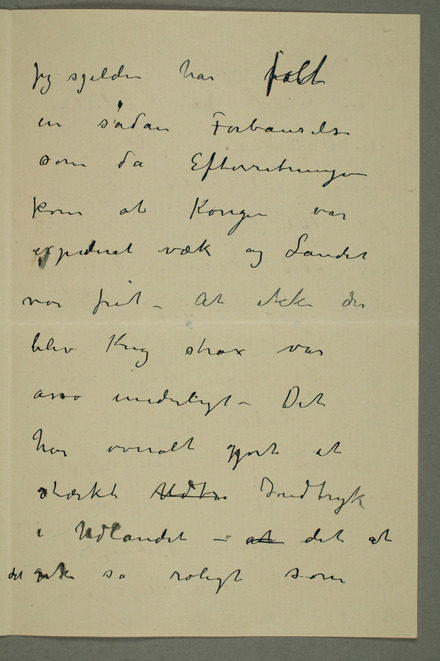 Jeg sjelden har følt
en sådan Forbauselse
som da Efterretningen
kom at Kongen var
expederet væk og Landet
var frit – At ikke der
blev Krig strax var
underligt – Det
har overalt gjort et
stærkt Udtr. Indtryk
i Udlandet – at det at
det gik så roligt som